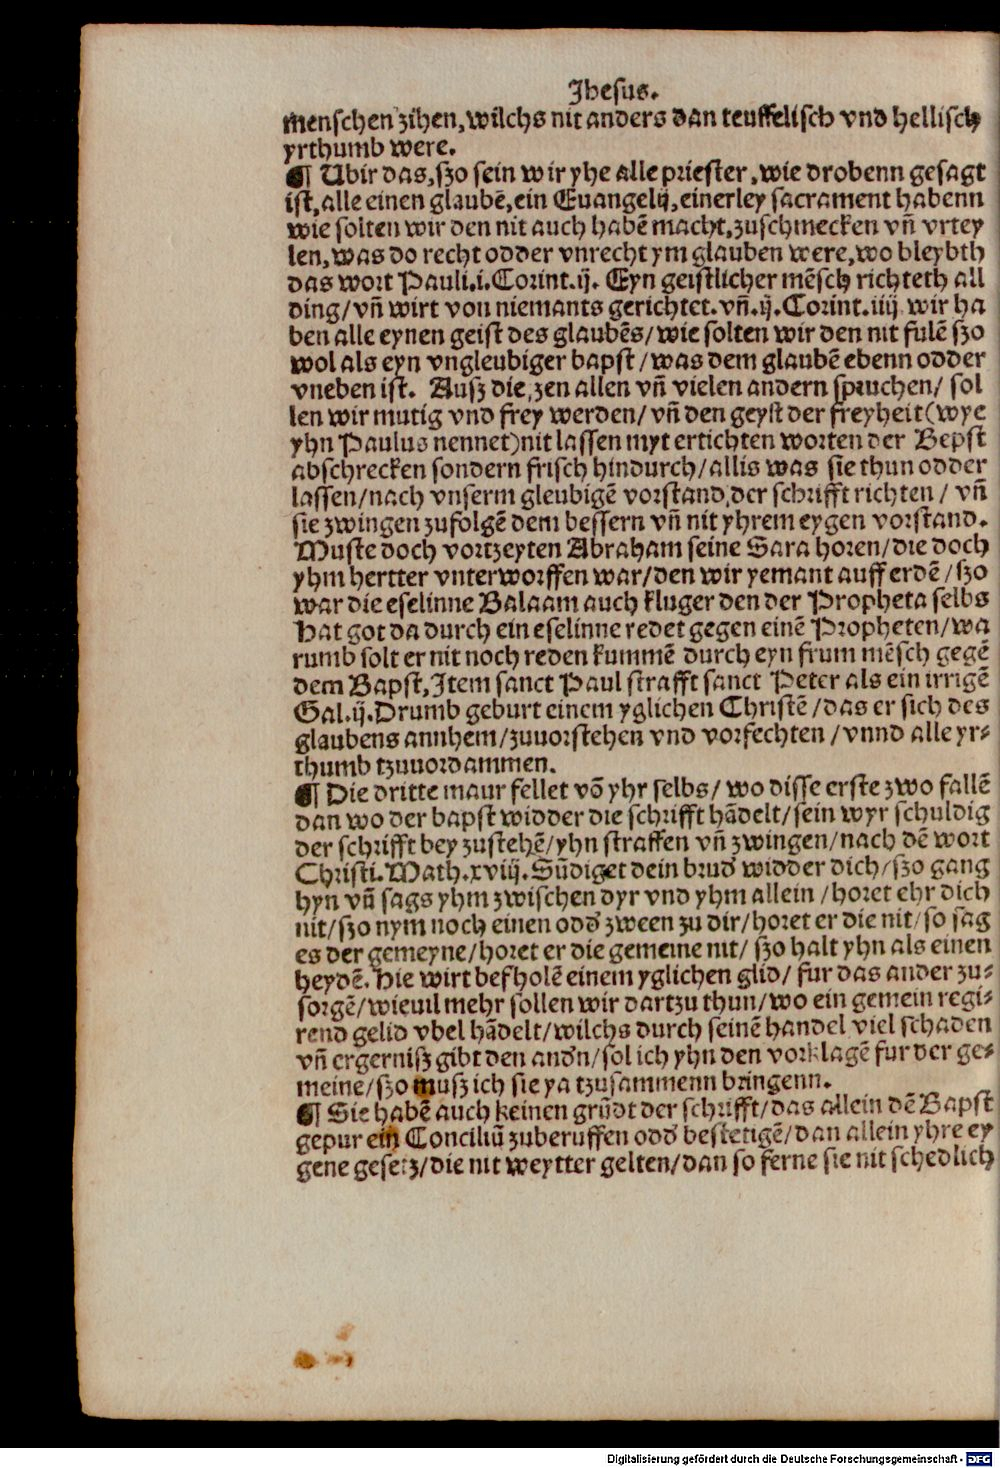 Jhesus.
menschen zihen, wilchs nit anders dan teuffelisch vnd hellisch
yrthumb were.
¶ Ubir das, szo sein wir yhe alle priester, wie drobenn gesagt
ist, alle einen glaubē, ein Euangelij, einerley sacrament habenn
wie solten wir den nit auch habē macht, zuschmecken vñ vrtey
len, was do recht odder vnrecht ym glauben were, wo bleybth
das wort Pauli .i. Corint. ij. Eyn geistlicher mēsch richteth all
ding / vñ wirt von niemants gerichtet. vñ .ij. Corint. iiij wir ha
ben alle eynen geist des glaubēs / wie solten wir den nit fulē szo
wol als eyn vngleubiger bapst / was dem glaubē ebenn odder
vneben ist. Ausz die,zen allen vñ vielen andern spruchen / sol
len wir mutig vnd frey werden / vñ den geyst der freyheit (wye
yhn Paulus nennet) nit lassen myt ertichten worten der Bepst
abschrecken sondern frisch hindurch / allis was sie thun odder
lassen / nach vnserm gleubigē vorstand, der schrifft richten / vñ
sie zwingen zufolgē dem bessern vñ nit yhrem eygen vorstand.
Muste doch vortzeyten Abraham seine Sara horen / die doch
yhm hertter vnterworffen war / den wir yemant auff erdē / szo
war die eselinne Balaam auch kluger den der Propheta selbs
Hat got da durch ein eselinne redet gegen einē Propheten / wa
rumb solt er nit noch reden kummē durch eyn frum mēsch gegē
dem Bapst, Item sanct Paul strafft sanct Peter als ein irrigē
Gal. ij. Drumb geburt einem yglichen Christē / das er sich des
glaubens annhem / zuuorstehen vnd vorfechten / vnnd alle yr-
thumb tzuuordammen.
¶ Die dritte maur fellet vō yhr selbs / wo disse erste zwo fallē
dan wo der bapst widder die schrifft hādelt / sein wyr schuldig
der schrifft bey zustehē / yhn straffen vñ zwingen / nach dē wort
Christi. Math. xviij. Sūdiget dein brud' widder dich / szo gang
hyn vñ sags yhm zwischen dyr vnd yhm allein / horet ehr dich
nit / szo nym noch einen odd' zween zu dir / horet er die nit / so sag
es der gemeyne / horet er die gemeine nit / szo halt yhn als einen
heydē. Hie wirt befholē einem yglichen glid / fur das ander zu-
sorgē / wieuil mehr sollen wir dartzu thun / wo ein gemein regi-
rend gelid vbel hādelt / wilchs durch seinē handel viel schaden
vñ ergernisz gibt den and'n / sol ich yhn den vorklagē fur der ge-
meine / szo musz ich sie ya tzusammenn bringenn.
¶ Sie habē auch keinen grūdt der schrifft / das allein dē Bapst
gepur ein Conciliū zuberuffen odd' bestetigē / dan allein yhre ey
gene gesetz / die nit weytter gelten / dan so ferne sie nit schedlich
Digitalisierung gefördert durch die Deutsche Forschungsgemeinschaft - DFG